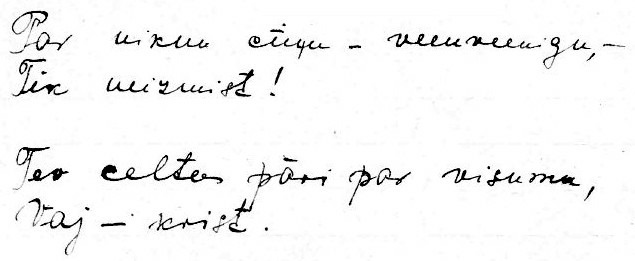 Par niknu cīņu – vienvienīgu, –
Tik neizmist!
Tev celties pāri par visumu,
Vaj – krist.